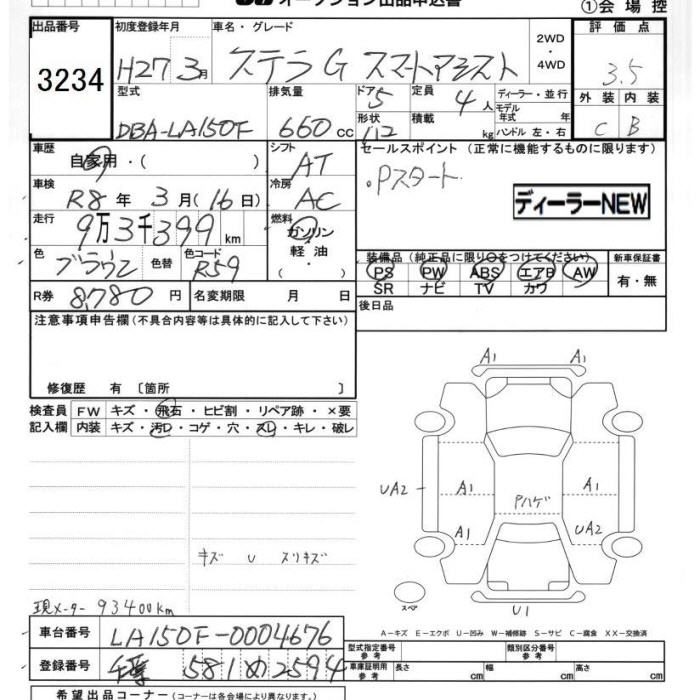 オークション出品申込書
①会場控
出品番号
3234
初度登録年月
H27 3月
車名・グレード
ステラ G スマートアシスト
2WD
・
4WD
評価点
3.5
外装 内装
C B
型式
DBA-LA150F
排気量
660 cc
ドア 5
形状
定員 4人
積載 kg
ディーラー・並行
モデル
年式 年
ハンドル 左・右
車歴
自家用・( )
シフト
AT
セールスポイント (正常に機能するものに限ります)
・Pスタート
ディーラーNEW
車検
R8年 3月(16日)
冷房
AC
走行
9万3千399km
燃料
ガソリン
軽油
・
色
ブラウン
色替
色コード
R59
装備品 (純正品に限り○をつけてください)
PS PW ABS エアB AW
SR ナビ TV カワ
新車保証書
有・無
R券 8,780円
名変期限 月 日
後日品
注意事項申告欄(不具合内容等は具体的に記入して下さい)
修復歴 有 〔箇所 〕
検査員 FW キズ・飛石・ヒビ割・リペア跡・×要
記入欄 内装 キズ・汚レ・コゲ・穴・スレ・キレ・破レ
A1 A1
UA2 A1 Pハゲ A1
A1 UA2
キズ U スリキズ
スペア
U1
現メーター 93400km
A−キズ E−エクボ U−凹み W−補修跡 S−サビ C−腐食 XX−交換済
車台番号 LA150F-0004676
登録番号 千葉 581 め 2594
型式指定番号 類別区分番号
車庫証明用
参考
長さ cm 幅 cm 高さ cm
希望出品コーナー(コーナーは各会場により異なります。)